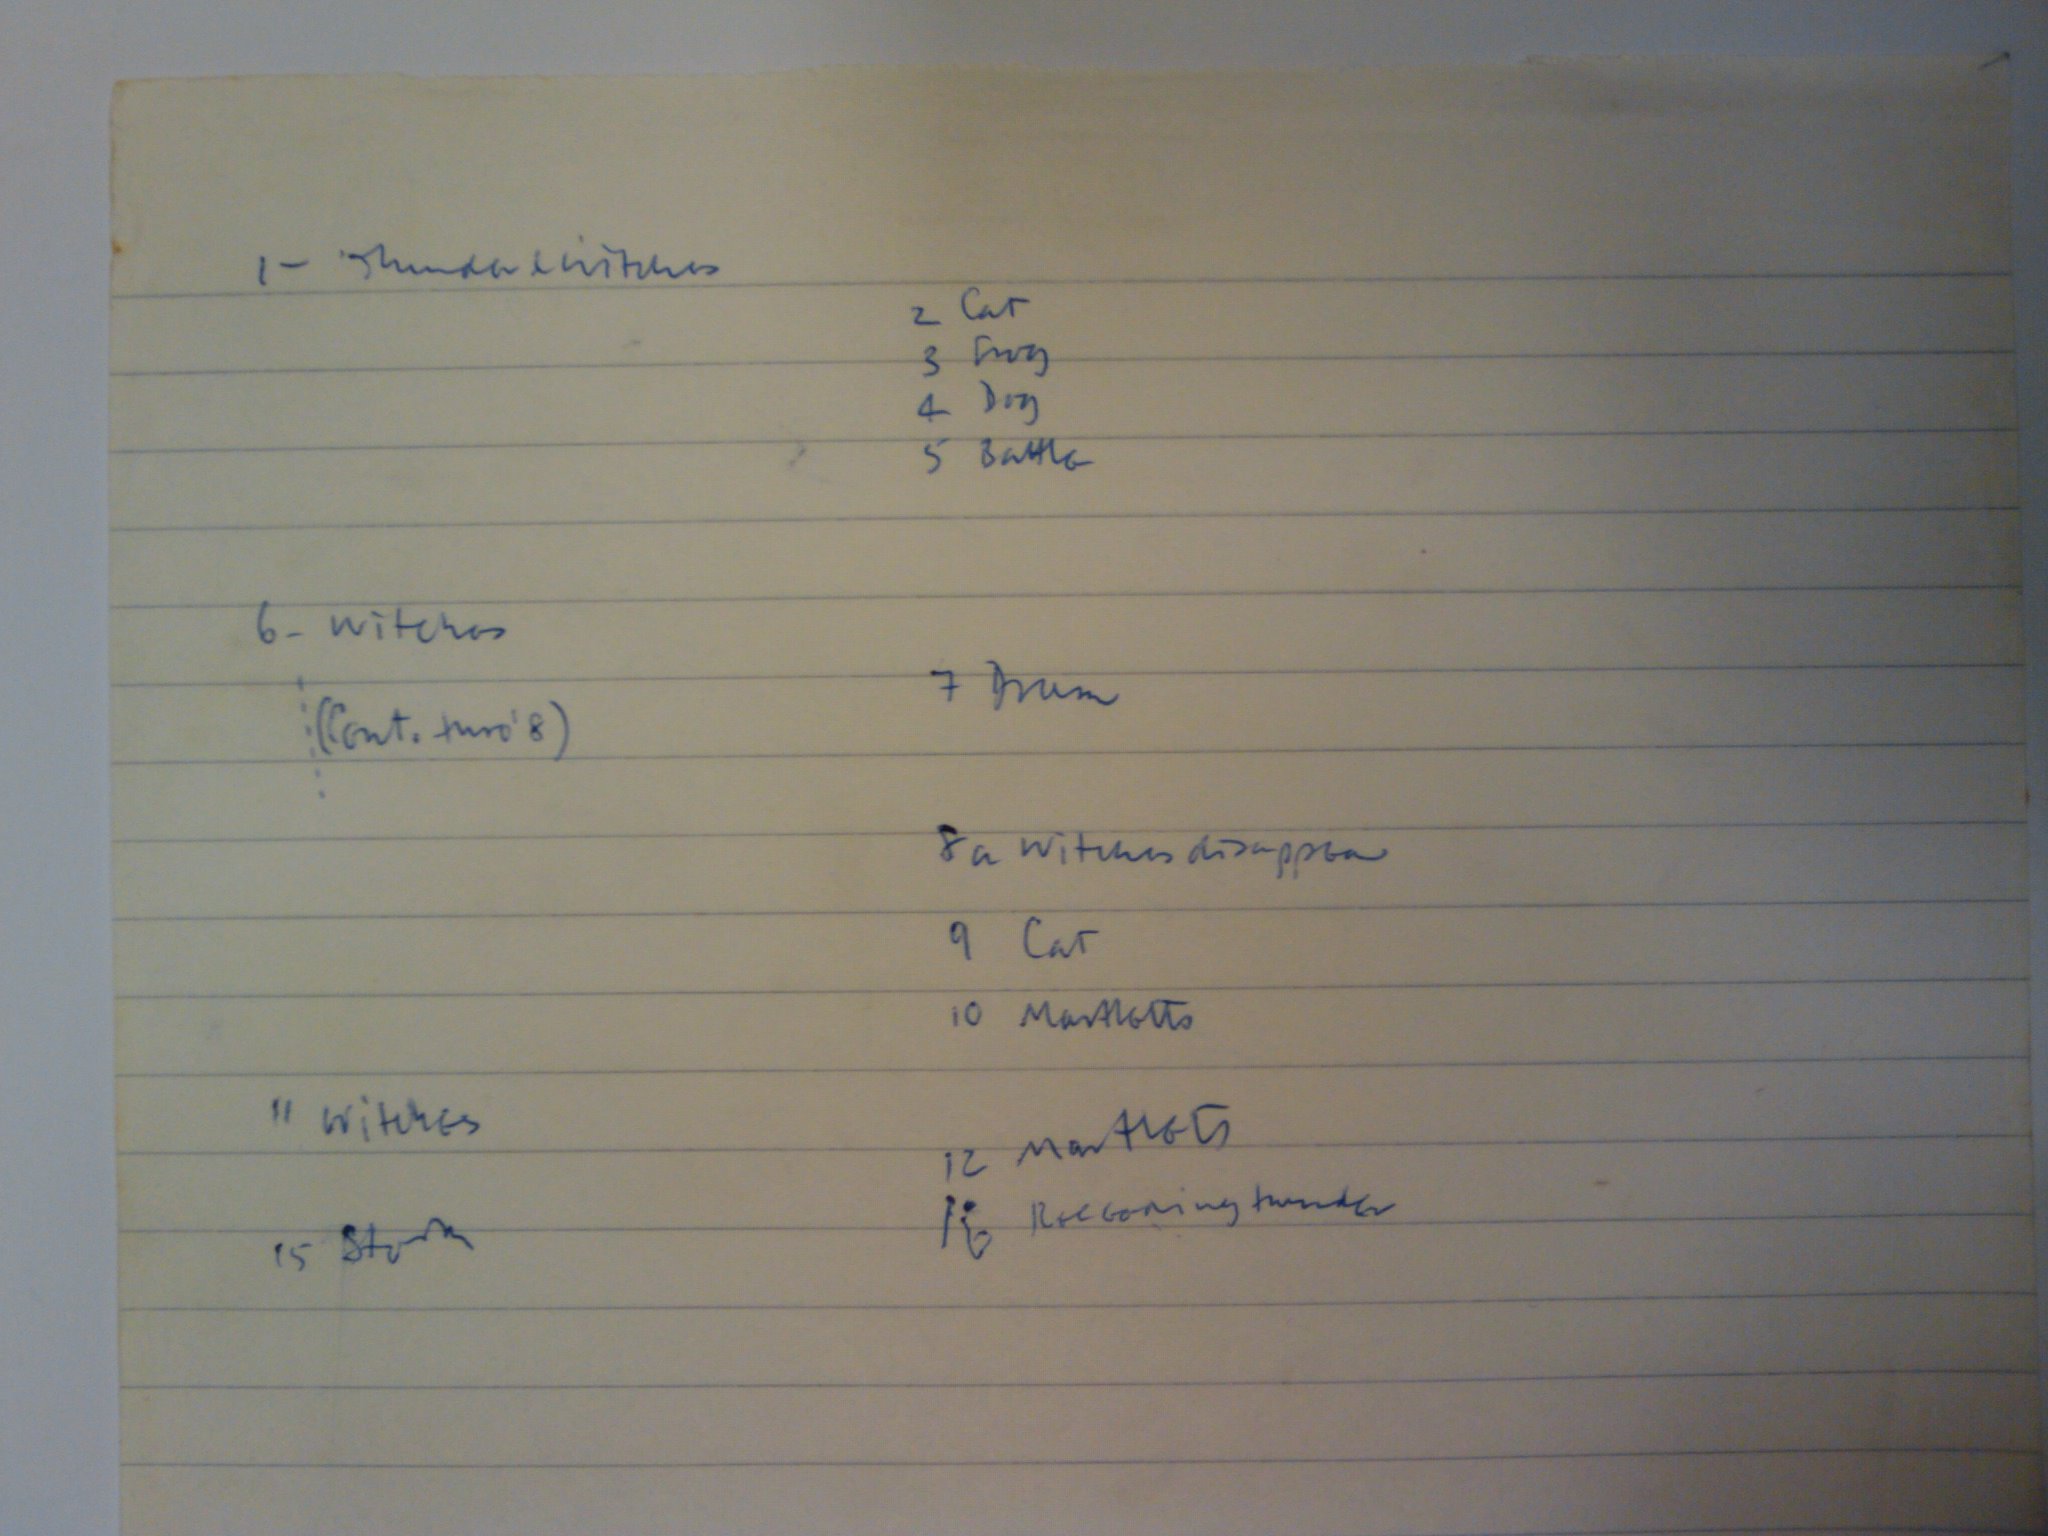 1 - Thunder & Witches
2 Cat
3 Frog
4 Dog
5 Battle
6 - Witches
7 Drum
(Cont. thro' 8)
8a Witches disappear
9 Cat
10 Martletts
11 Witches
12 Martlets
15 Storm
Reccoring thunder